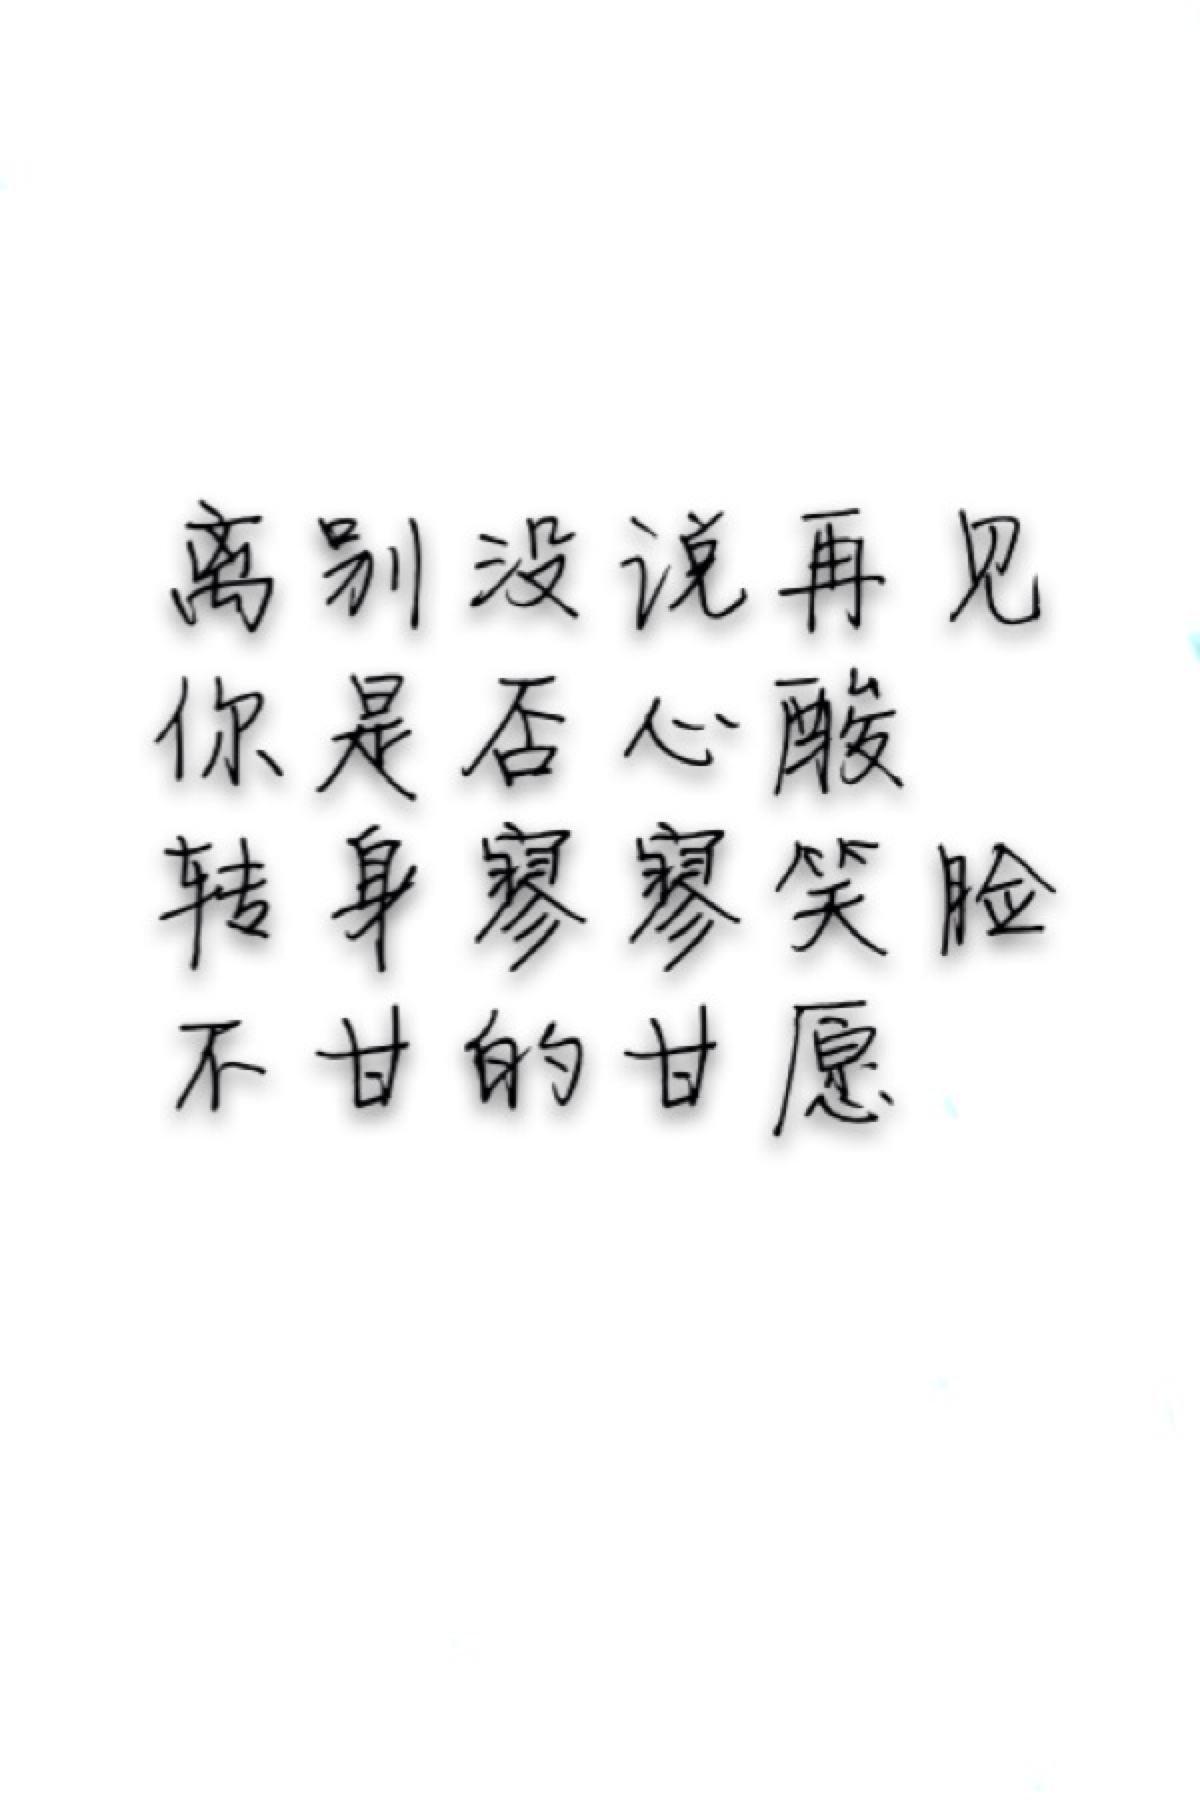 离别没说再见
你是否心酸
转身寥寥笑脸
不甘的甘愿